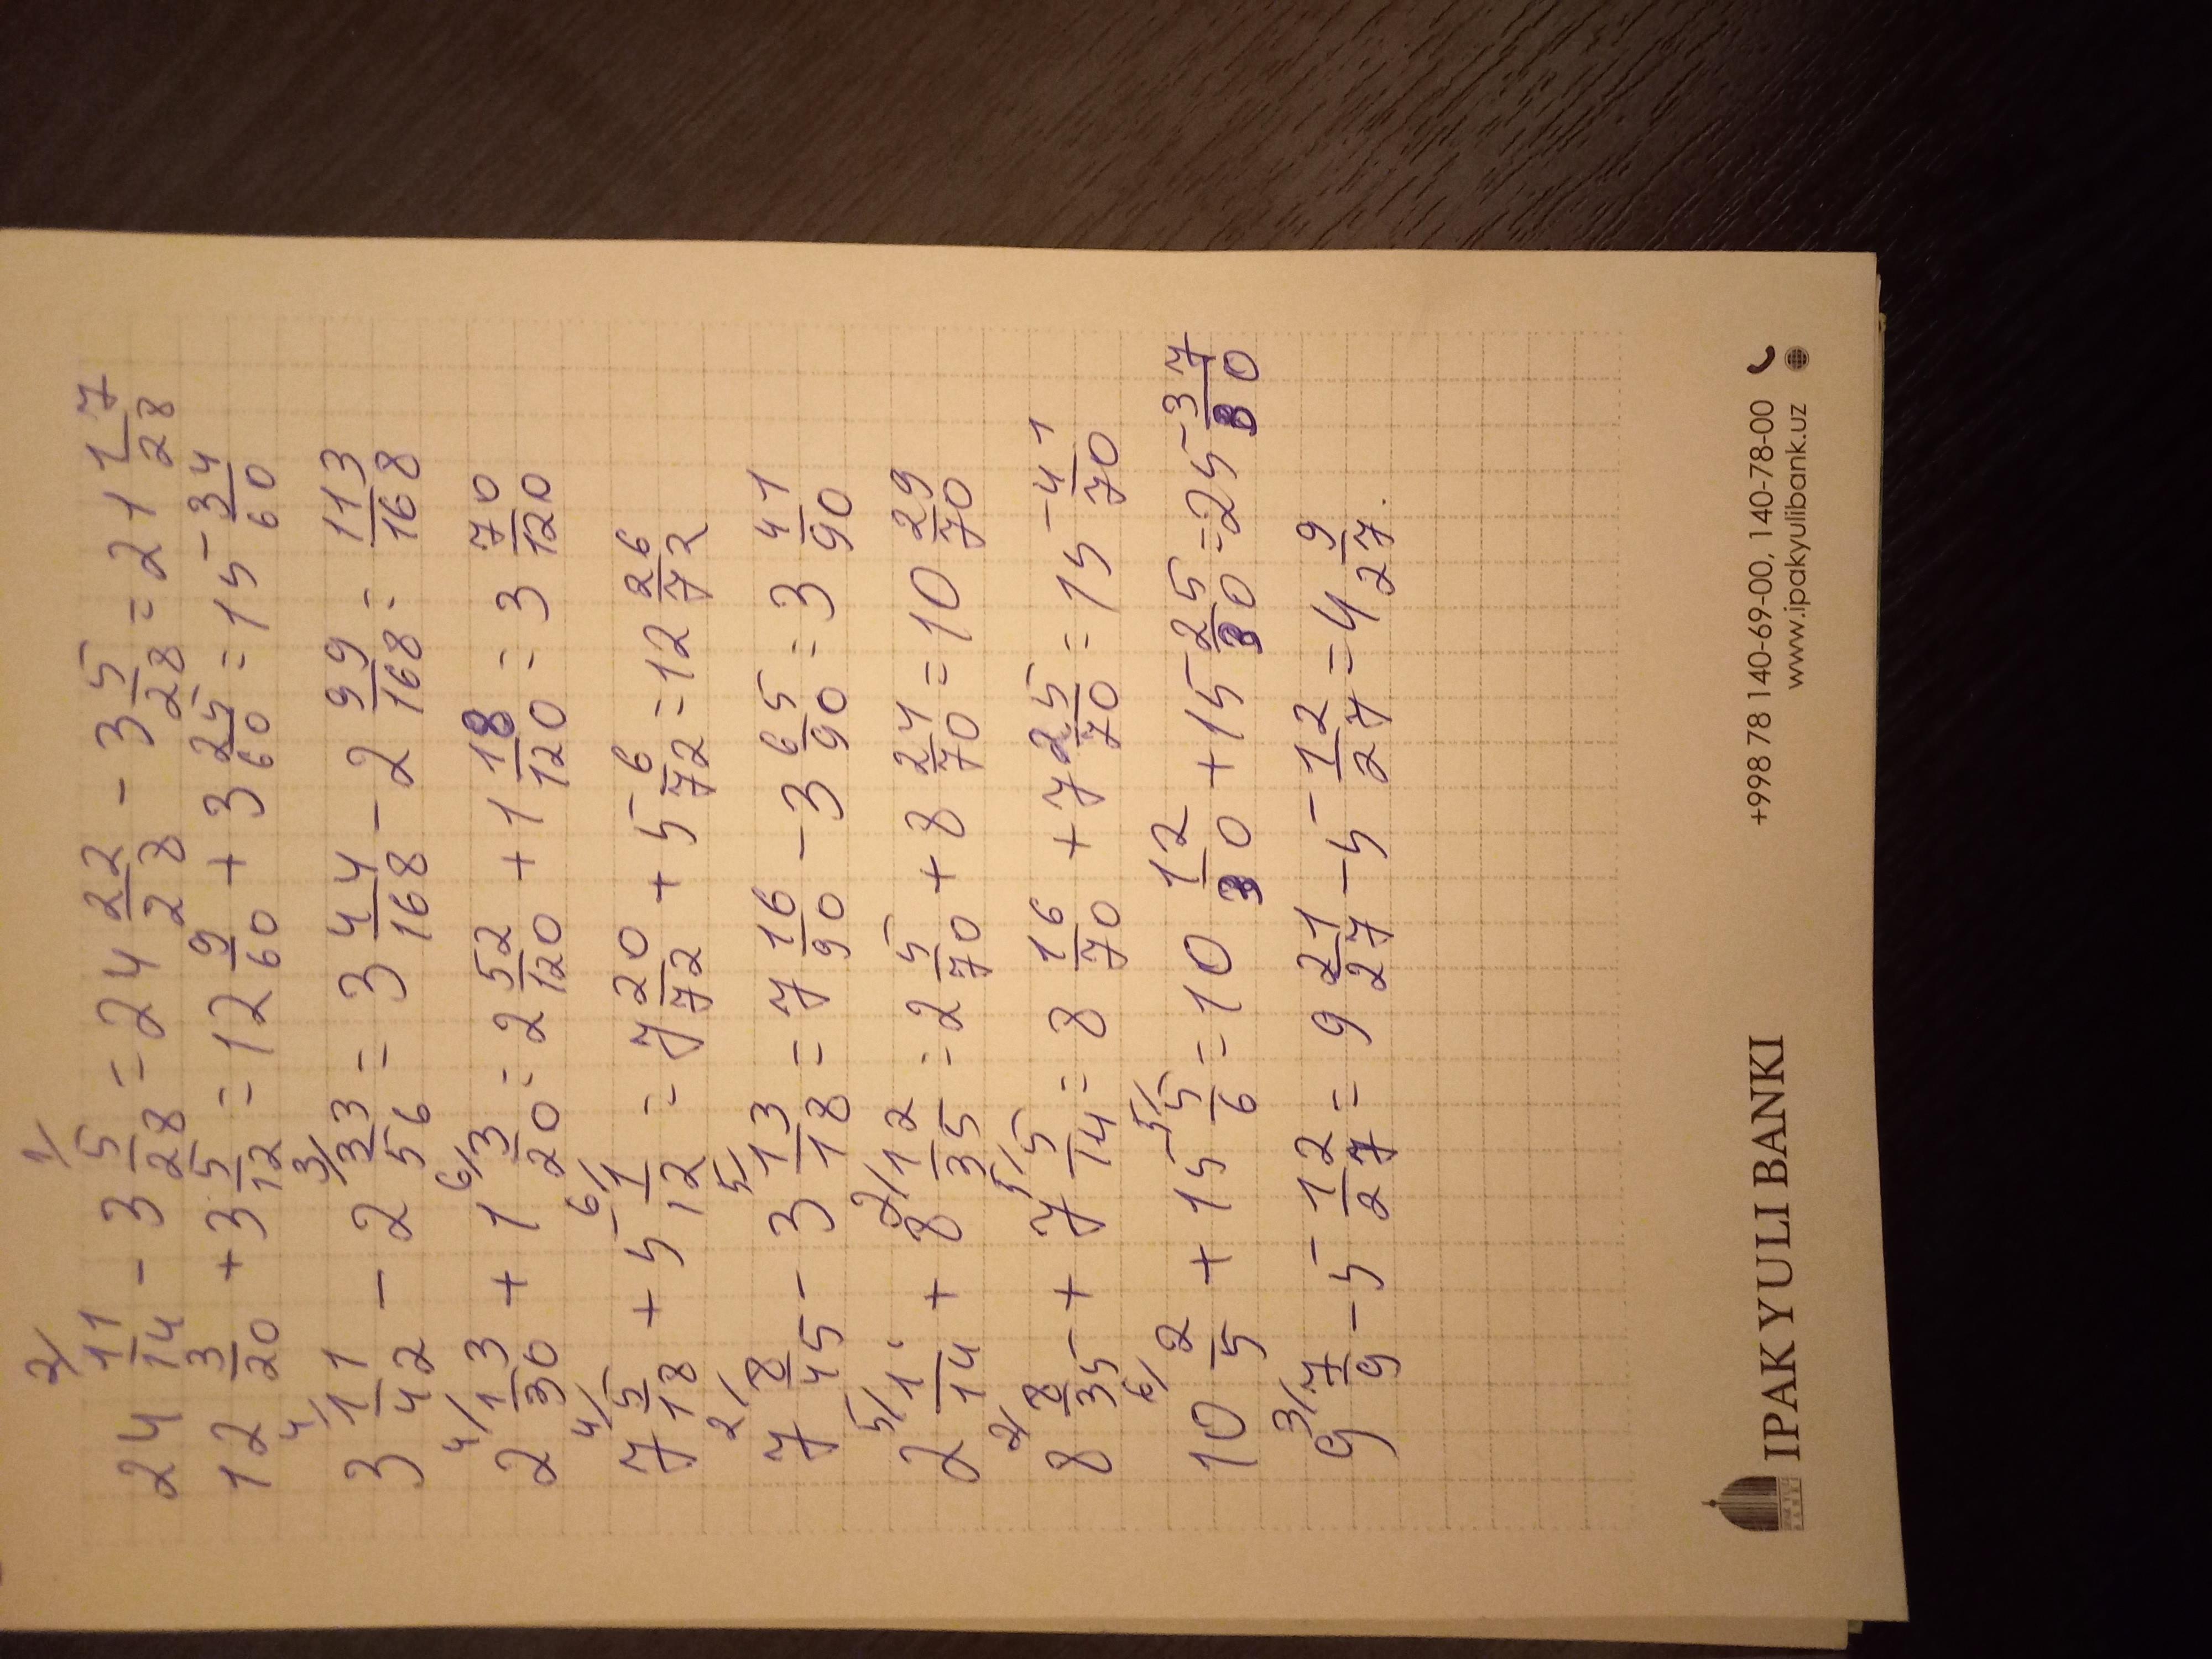 24 2/ 11/14 - 3 1/ 5/28 = 24 22/28 - 3 5/28 = 21 17/28
12 3/20 + 3 5/12 = 12 9/60 + 3 25/60 = 15 34/60
3 4/ 11/42 - 2 3/ 33/56 = 3 44/168 - 2 99/168 = 113/168
2 4/ 13/30 + 1 6/ 3/20 = 2 52/120 + 1 18/120 = 3 70/120
7 4/ 5/18 + 5 6/ 1/12 = 7 20/72 + 5 6/72 = 12 26/72
7 2/ 8/45 - 3 5/ 13/18 = 7 16/90 - 3 65/90 = 3 41/90
2 5/ 1/14 + 8 2/ 12/35 = 2 5/70 + 8 24/70 = 10 29/70
8 2/ 8/35 + 7 5/ 5/14 = 8 16/70 + 7 25/70 = 15 41/70
10 6/ 2/5 + 15 5/ 5/6 = 10 12/30 + 15 25/30 = 25 37/30
9 3/ 7/9 - 5 12/27 = 9 21/27 - 5 12/27 = 4 9/27.
IPAK YULI BANKI
+998 78 140-69-00, 140-78-00
www.ipakyulibank.uz